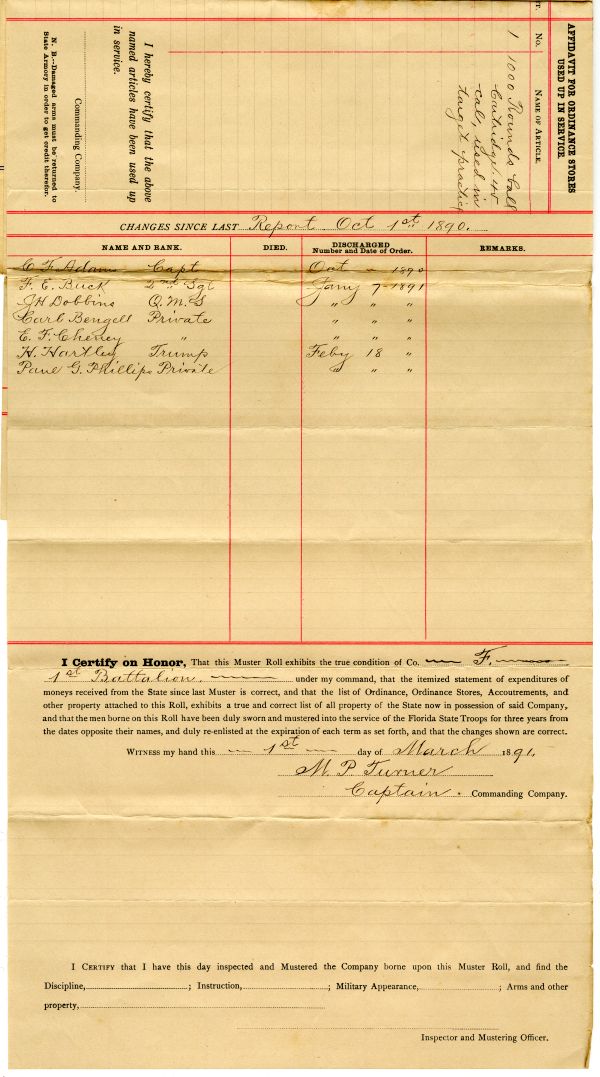 AFFIDAVIT FOR ORDINANCE STORES
USED UP IN SERVICE.
No. NAME OF ARTICLE.
1 1000 Rounds Ball
Cartridges 45
cal, used in
target practic
I hereby certify that the above
named articles have been used up
in service.
Commanding Company.
N. B.—Damaged arms must be returned to
State Armory in order to get credit therefor.
CHANGES SINCE LAST Report Oct 1st 1890.
NAME AND RANK. DIED. DISCHARGED REMARKS.
Number and Date of Order.
C F Adams Capt Oct - 1890
F. E. Buck 2nd Sgt Jany 7 - 1891
J H Dobbins Q. M. S " " "
Carb Bengell Private " " "
E. F. Cheney " " " "
H. Hartley Trump Feby 18 "
Paul G. Phillips Private " " "
I Certify on Honor, That this Muster Roll exhibits the true condition of Co. F.
1st Battalion. under my command, that the itemized statement of expenditures of
moneys received from the State since last Muster is correct, and that the list of Ordinance, Ordinance Stores, Accoutrements, and
other property attached to this Roll, exhibits a true and correct list of all property of the State now in possession of said Company,
and that the men borne on this Roll have been duly sworn and mustered into the service of the Florida State Troops for three years from
the dates opposite their names, and duly re-enlisted at the expiration of each term as set forth, and that the changes shown are correct.
WITNESS my hand this — 1st — day of March 1891.
M. P. Turner
Captain. Commanding Company.
I CERTIFY that I have this day inspected and Mustered the Company borne upon this Muster Roll, and find the
Discipline, ; Instruction, ; Military Appearance, ; Arms and other
property,
Inspector and Mustering Officer.